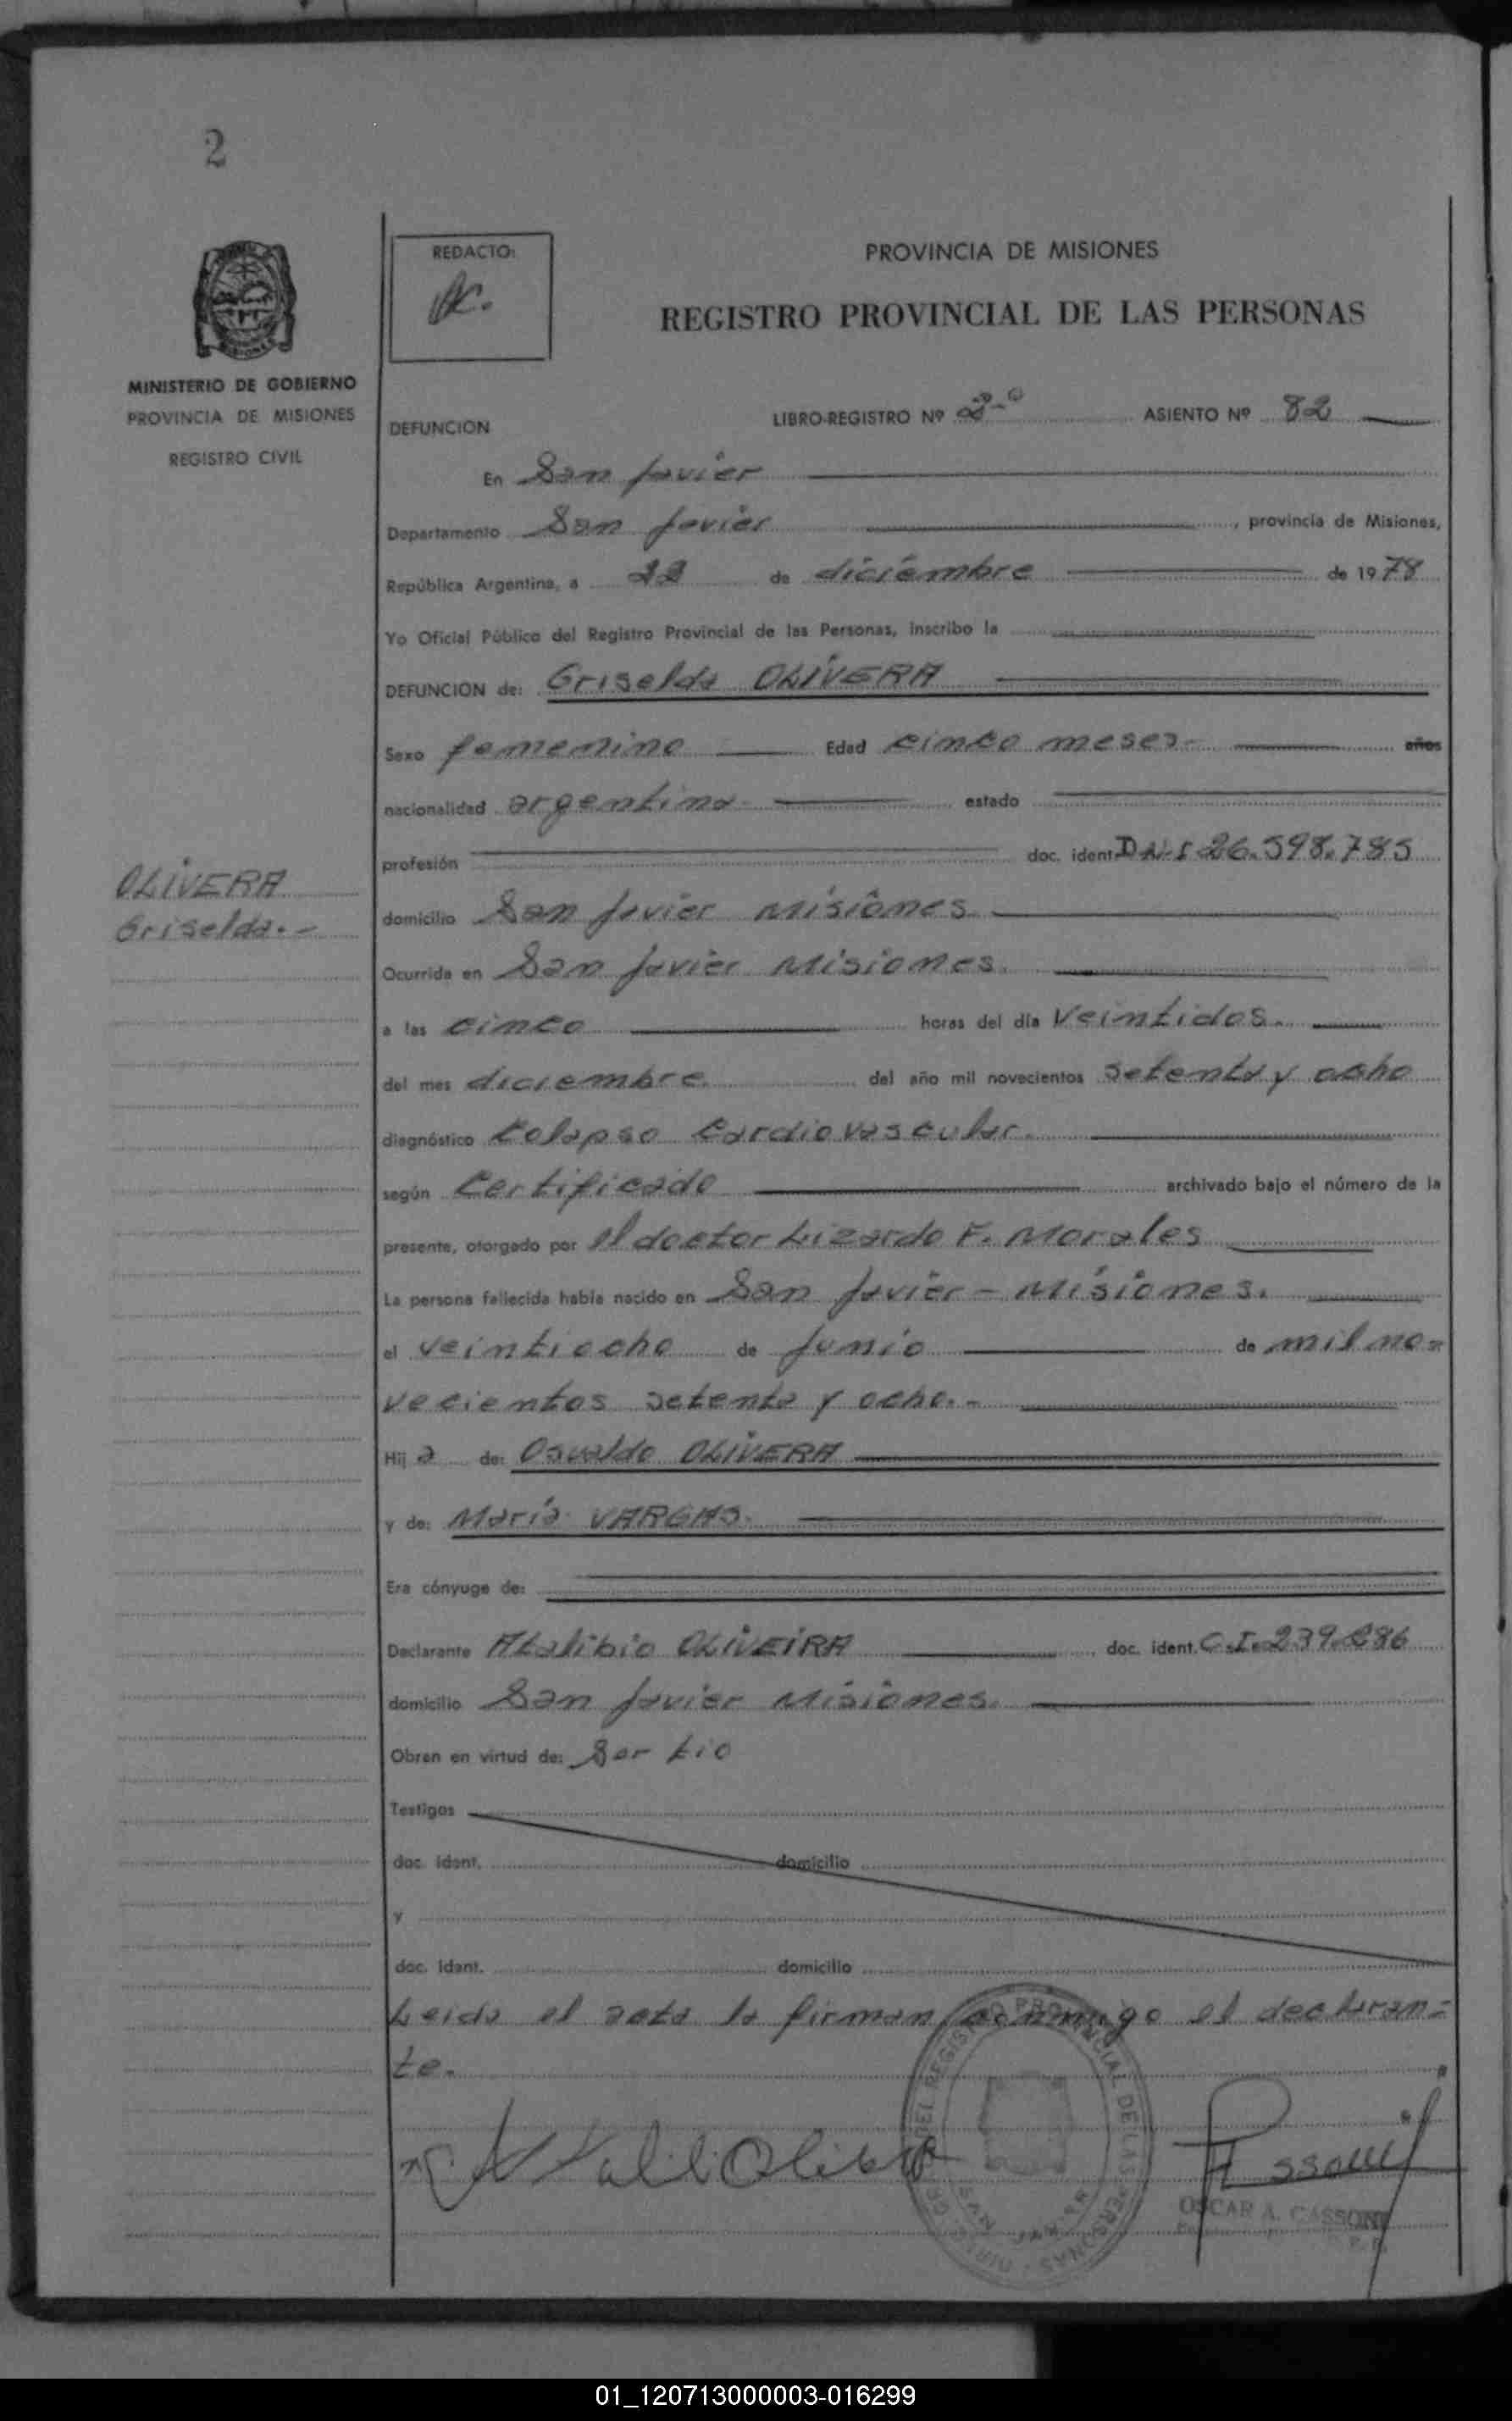 2
REDACTO:
PROVINCIA DE MISIONES
REGISTRO PROVINCIAL DE LAS PERSONAS
MINISTERIO DE GOBIERNO
PROVINCIA DE MISIONES
REGISTRO CIVIL
DEFUNCION LIBRO-REGISTRO Nº ASIENTO Nº 82
En San Javier
Departamento San Javier, provincia de Misiones,
República Argentina, a 22 de diciembre de 1978
Yo Oficial Público del Registro Provincial de las Personas, inscribo la
DEFUNCION de: Griselda OLIVERA
Sexo femenino Edad cinco meses.- años
nacionalidad argentina. estado
profesión doc. ident. D.N.I 26.598.785
OLIVERA
Griselda.-
domicilio San Javier Misiones
Ocurrida en San Javier Misiones.
a las cinco horas del día Veintidos.
del mes diciembre del año mil novecientos setenta y ocho
diagnóstico Colapso Cardiovascular.
según Certificado archivado bajo el número de la
presente, otorgado por el doctor Lizardo F. Morales
La persona fallecida había nacido en San Javier - Misiones.
el veintiocho de Junio de mil no=
vecientos setenta y ocho.-
Hij a de: Osvaldo OLIVERA
y de: María VARGAS.
Era cónyuge de:
Declarante Atalibio OLIVEIRA doc. ident. C.I. 239.286
domicilio San Javier Misiones.
Obran en virtud de: Ser tio
Testigos
doc. ident. domicilio
y
doc. ident. domicilio
Leida el acta la firman conmigo el declaran=
te.
DEL REGISTRO PROVINCIAL DE LAS PERSONAS
SAN JAVIER
OSCAR A. CASSONI
01_120713000003-016299